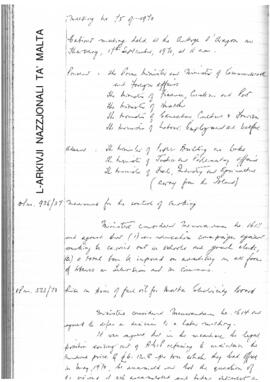 Meeting No 75 of 1970
Cabinet meeting held at the Auberge d'Aragon on
Thursday, 17th September, 1970, at 10 a.m.
Present: the Prime Minister and Minister of Commonwealth
and Foreign Affairs
the Minister of Finance, Customs and Port
the Minister of Health
the Minister of Education, Culture & Tourism
the Minister of Labour, Employment and Welfare
Absent: the Minister of Public Building and Works
the Minister of Justice and Parliamentary Affairs
the Minister of Trade, Industry and Agriculture
(away from the Island)
L-ARKIVJI NAZZJONALI TA' MALTA
Measures for the control of smoking
Ministers considered Memorandum No
and agreed that (1) an education campaign against
smoking be carried out in schools and youth clubs,
(2) a total ban be imposed on advertising in all forms
of on Television and in Cinemas
Rise in price of fuel oil for Malta Electricity Board
Ministers considered Memorandum No 1614 and
agreed to defer a decision to a later meeting.
It was agreed that in the meantime the legal
position arising out of refusing to maintain the
price of per ton which they had offered
in May, 1970, be examined and that the question of